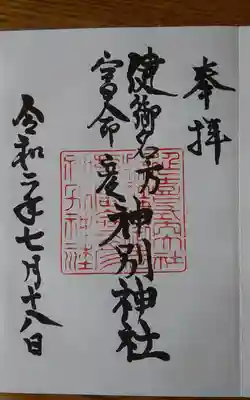 奉拝
健御名方
富命彦神別神社
令和二年七月十八日